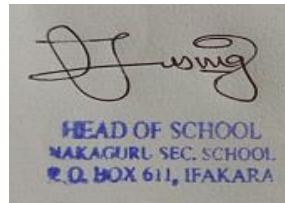 HEAD OF SCHOOL
NAKAGURU SEC. SCHOOL
P.O. BOX 611, IFAKARA